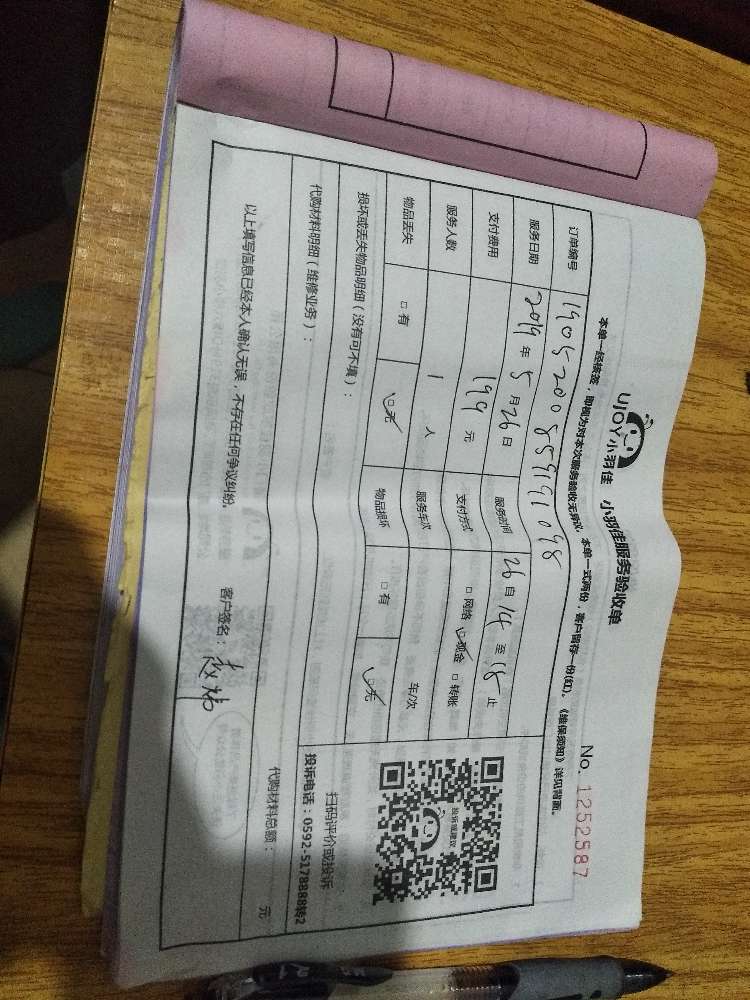 UJOY小羽佳 小羽佳服务验收单
No. 1252587
本单一经核签，即视为对本次服务验收无异议，本单一式两份，客户留存一份(红)。《维保须知》详见背面。
订单编号 1905200859191098
服务日期 2019年5月26日 服务时间 26自14至18止
支付费用 199元 支付方式 □网络 ☑现金 □转账
服务人数 1人 服务车次 车/次
物品丢失 □有 ☑无 物品损坏 □有 ☑无
投诉或建议
扫码评价或投诉
投诉电话：0592-5178888转2
损坏或丢失物品明细（没有可不填）：
代购材料明细（维修业务）：
代购材料总额： 元
以上填写信息已经本人确认无误，不存在任何争议纠纷。 客户签名：